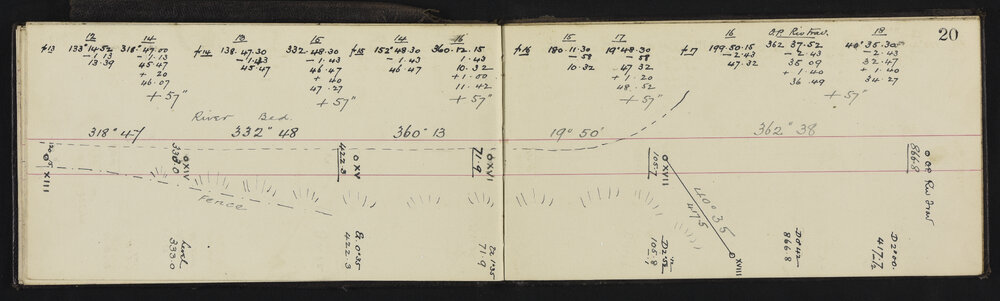 12 14 13 15 14 16
⊼13 133°14.52 318°47.00 ⊼14 138.47.30 332.48.30 ⊼15 152°48.30 360.12.15
- 1.13 - 1.13 - 1.43 - 1.43 - 1.43 1.43
13.39 45.47 45.47 46.47 46.47 10.32
+ 20 + 40 + 1.00
46.07 47.27 11.42
+ 57" + 57" + 57"
River Bed.
318°47 332°48 360°13
⊙ XIII
333.0
⊙ XIV
422.3
⊙ XV
71.9
⊙ XVI
Fence
Level
333.0
E. 0°35
422.3
E 1°35
71.9
20
15 17 16 O.P. Riv Trav. 18
⊼16 180.11.30 19°48.30 ⊼17 199.50.15 362 37.52 40°35.30
- 58 - 58 - 2.43 - 2.43 - 2.43
10.32 47 32 47.32 35 09 32.47
+ 1.20 + 1.40 + 1.40
48.52 36.49 34.27
+ 57" + 57"
19°50' 362°38
105.7
⊙ XVII
40°35
417.5
⊙ XVIII
866.8
⊙ O.P. Riv Trav
105.8
D 0°42
866.8
D 2°00.
417.5